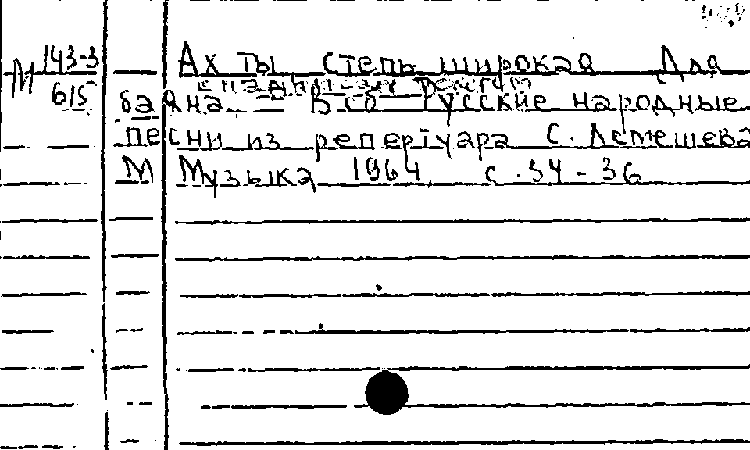 М 143-3
615
Ах ты степь широкая Для
с надписан. текстом
баяна = В сб Русские народные
песни из репертуара С. Лемешева
М Музыка 1964 с. 34-36